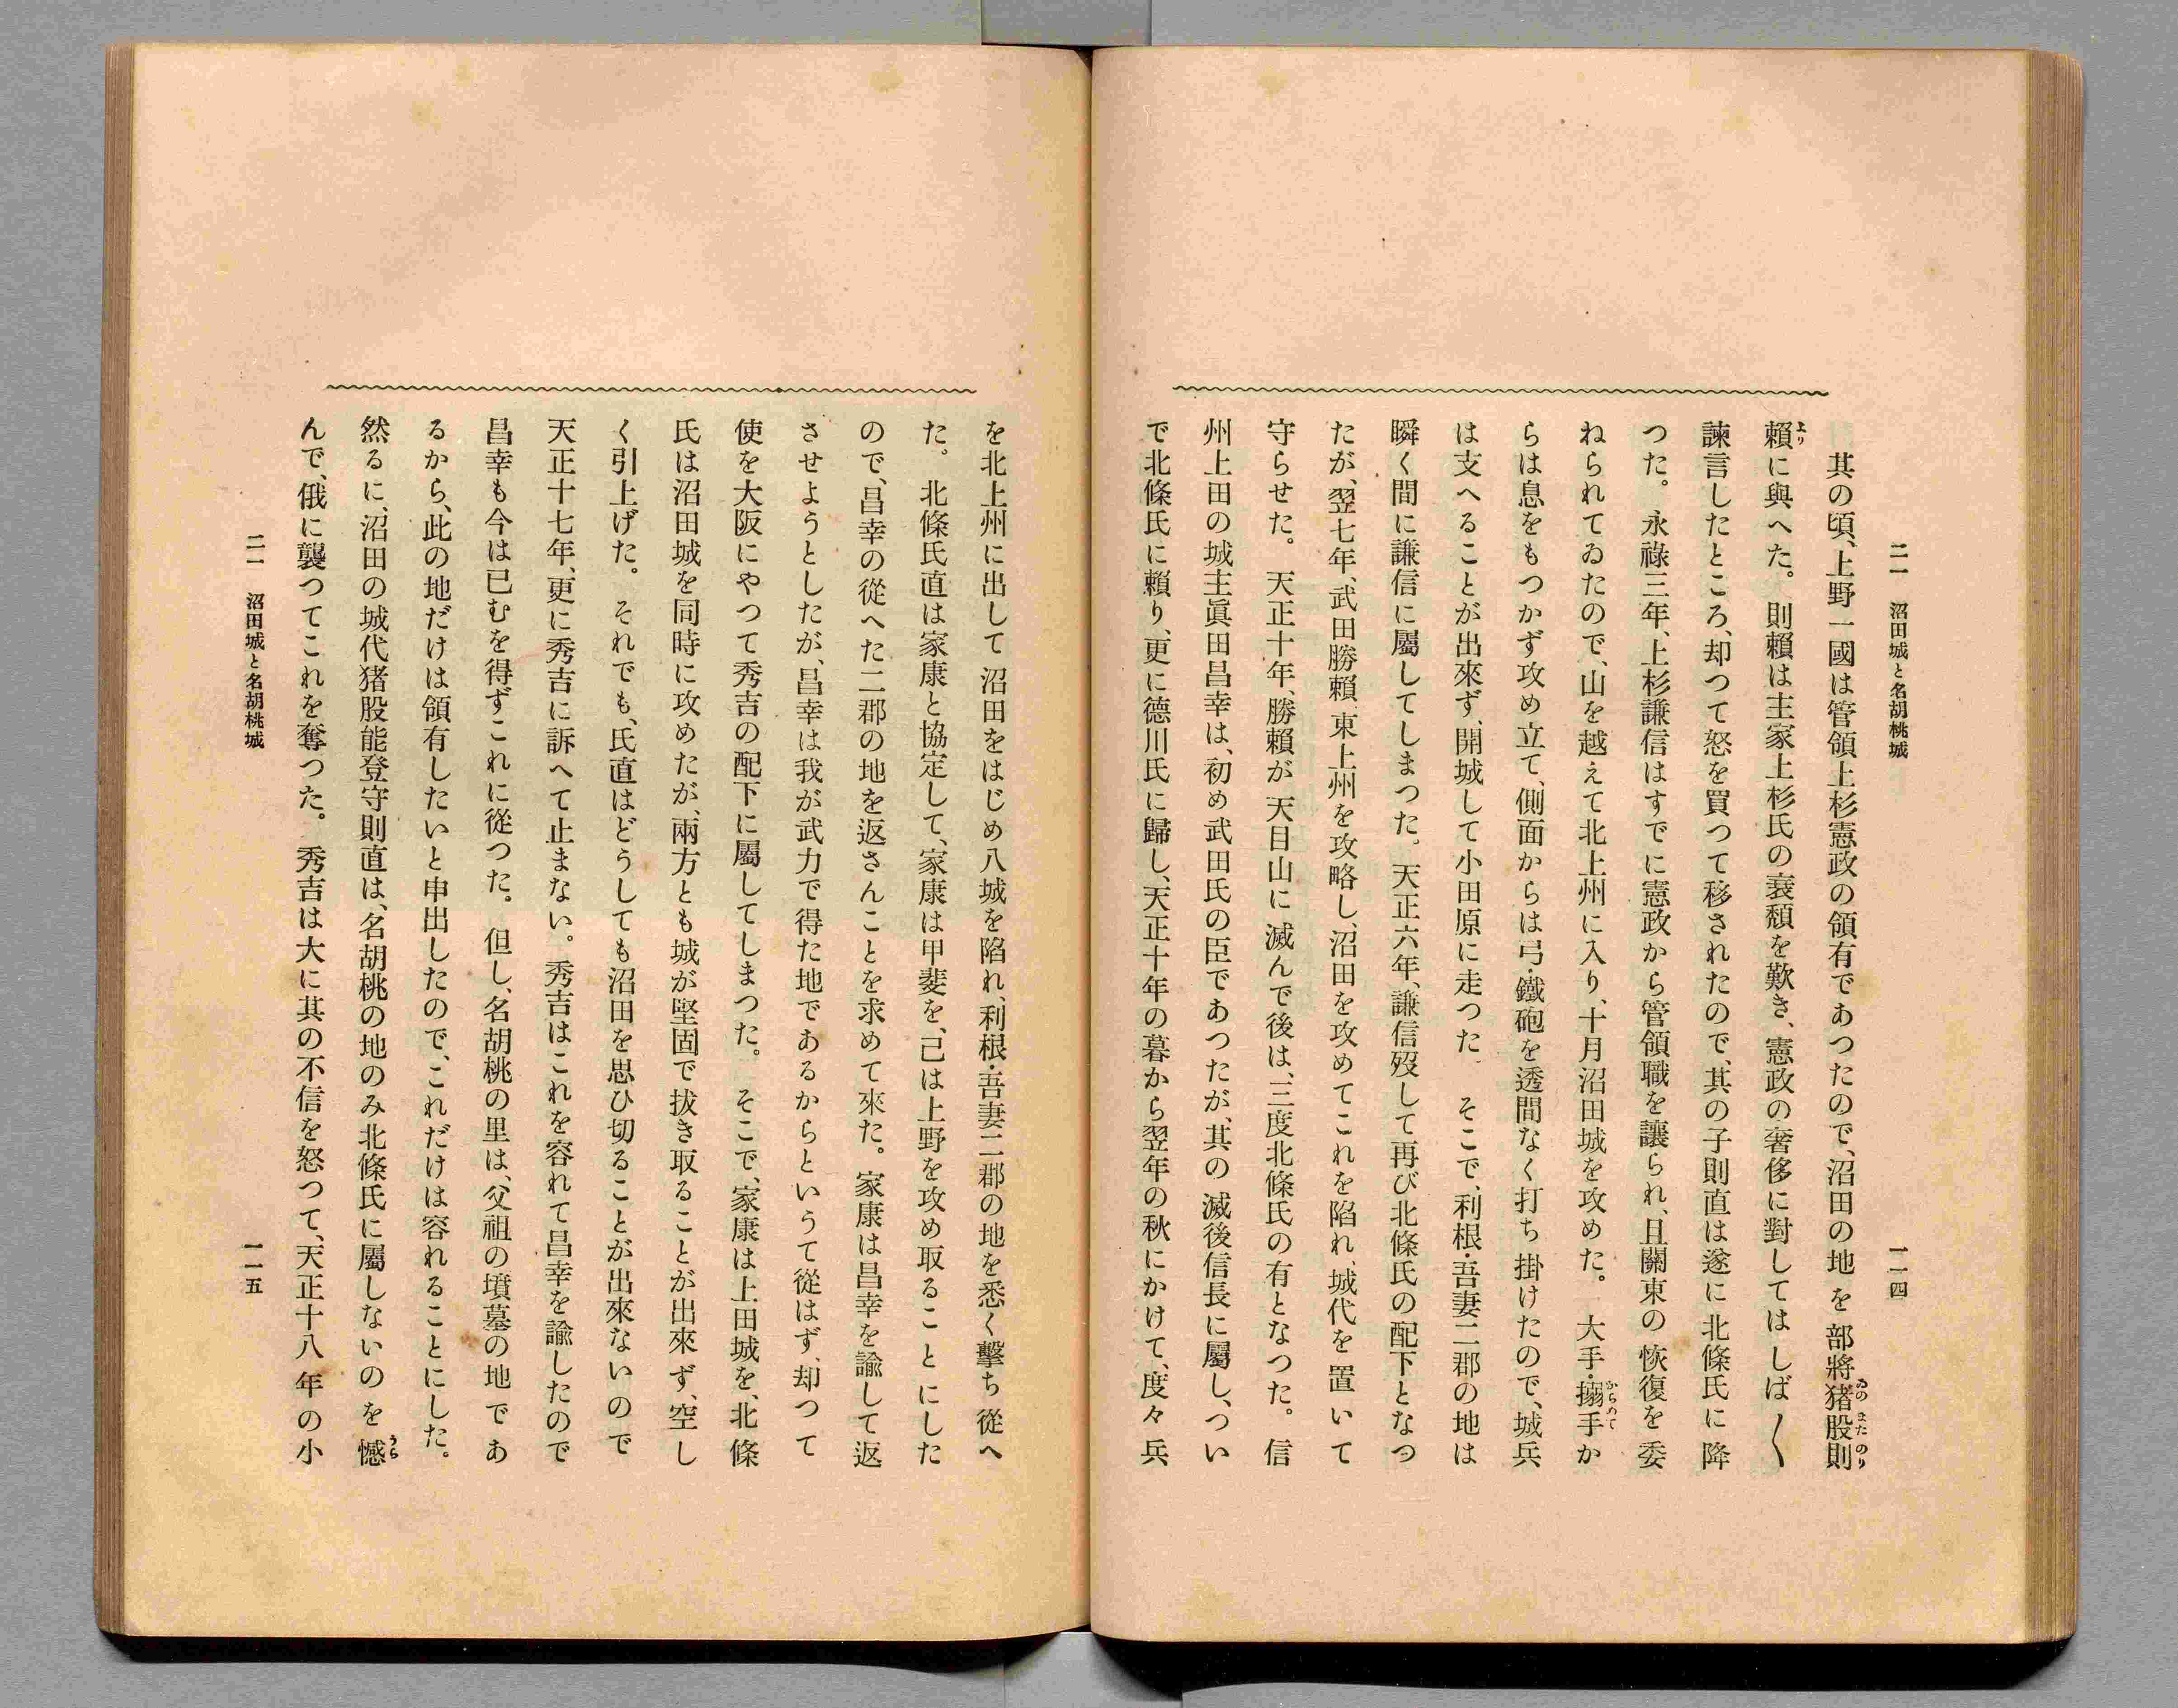 二一　沼田城と名胡桃城
一一四
其の頃、上野一國は管領上杉憲政の領有であつたので、沼田の地を部將猪股則
頼に與へた。則頼は主家上杉氏の衰頽を歎き、憲政の奢侈に對してはしば〳〵
諫言したところ、却つて怒を買つて移されたので、其の子則直は遂に北條氏に降
つた。永祿三年、上杉謙信はすでに憲政から管領職を讓られ、且關東の恢復を委
ねられてゐたので、山を越えて北上州に入り、十月沼田城を攻めた。大手・搦手か
らは息をもつかず攻め立て、側面からは弓・鐵砲を透間なく打ち掛けたので、城兵
は支へることが出來ず、開城して小田原に走つた。そこで、利根・吾妻二郡の地は
瞬く間に謙信に屬してしまつた。天正六年、謙信歿して再び北條氏の配下となつ
たが、翌七年、武田勝頼、東上州を攻略し、沼田を攻めてこれを陷れ、城代を置いて
守らせた。天正十年、勝頼が天目山に滅んで後は、三度北條氏の有となつた。信
州上田の城主眞田昌幸は、初め武田氏の臣であつたが、其の滅後信長に屬し、つい
で北條氏に頼り、更に德川氏に歸し、天正十年の暮から翌年の秋にかけて、度々兵
を北上州に出して沼田をはじめ八城を陷れ、利根・吾妻二郡の地を悉く擊ち從へ
た。北條氏直は家康と協定して、家康は甲斐を、己は上野を攻め取ることにした
ので、昌幸の從へた二郡の地を返さんことを求めて來た。家康は昌幸を諭して返
させようとしたが、昌幸は我が武力で得た地であるからというて從はず、却つて
使を大阪にやつて秀吉の配下に屬してしまつた。そこで、家康は上田城を、北條
氏は沼田城を同時に攻めたが、兩方とも城が堅固で拔き取ることが出來ず、空し
く引上げた。それでも、氏直はどうしても沼田を思ひ切ることが出來ないので
天正十七年、更に秀吉に訴へて止まない。秀吉はこれを容れて昌幸を諭したので
昌幸も今は已むを得ずこれに從つた。但し、名胡桃の里は、父祖の墳墓の地であ
るから、此の地だけは領有したいと申出したので、これだけは容れることにした。
然るに、沼田の城代猪股能登守則直は、名胡桃の地のみ北條氏に屬しないのを憾
んで、俄に襲つてこれを奪つた。秀吉は大に其の不信を怒つて、天正十八年の小
二一　沼田城と名胡桃城
一一五